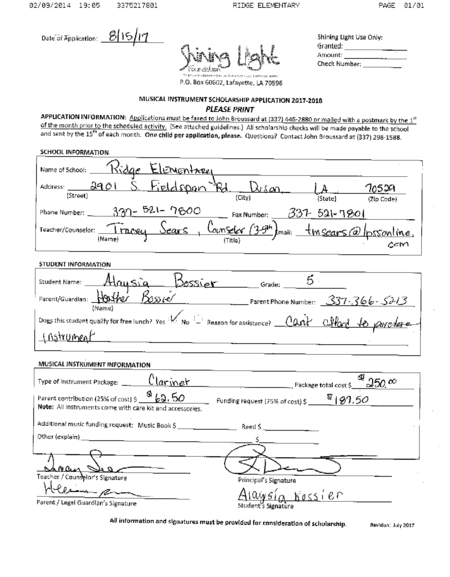 02/09/2014 19:05 3375217801 RIDGE ELEMENTARY PAGE 01/01
Date of Application: 8/15/17
Shining Light
Foundation
Shining Light Use Only:
Granted:
Amount:
Check Number:
P.O. Box 60602, Lafayette, LA 70596
MUSICAL INSTRUMENT SCHOLARSHIP APPLICATION 2017-2018
PLEASE PRINT
APPLICATION INFORMATION: Applications must be faxed to John Broussard at (337) 446-2880 or mailed with a postmark by the 1st
of the month prior to the scheduled activity. (See attached guidelines.) All scholarship checks will be made payable to the school
and sent by the 15th of each month. One child per application, please. Questions? Contact John Broussard at (337) 298-1588.
SCHOOL INFORMATION
Name of School: Ridge Elementary
Address: 2901 S. Fieldspan Rd. Duson LA 70529
(Street) (City) (State) (Zip Code)
Phone Number: 337-521-7800 Fax Number: 337-521-7801
Teacher/Counselor: Tracey Sears, Counselor (3-5th) Email: tmsears@lpssonline.
com
(Name) (Title)
STUDENT INFORMATION
Student Name: Alaysia Bossier Grade: 5
Parent/Guardian: Heather Bossier Parent Phone Number: 337-366-5213
(Name)
Does this student qualify for free lunch? Yes ✓ No Reason for assistance? Can't afford to purchase
instrument
MUSICAL INSTRUMENT INFORMATION
Type of Instrument Package: Clarinet Package total cost $ $250.00
Parent contribution (25% of cost) $ $62.50 Funding request (75% of cost) $ $187.50
Note: All instruments come with care kit and accessories.
Additional music funding request: Music Book $ Reed $
Other (explain) $
Teacher / Counselor's Signature Principal's Signature
Alaysia Bossier
Parent / Legal Guardian's Signature Student's Signature
All information and signatures must be provided for consideration of scholarship. Revision: July 2017